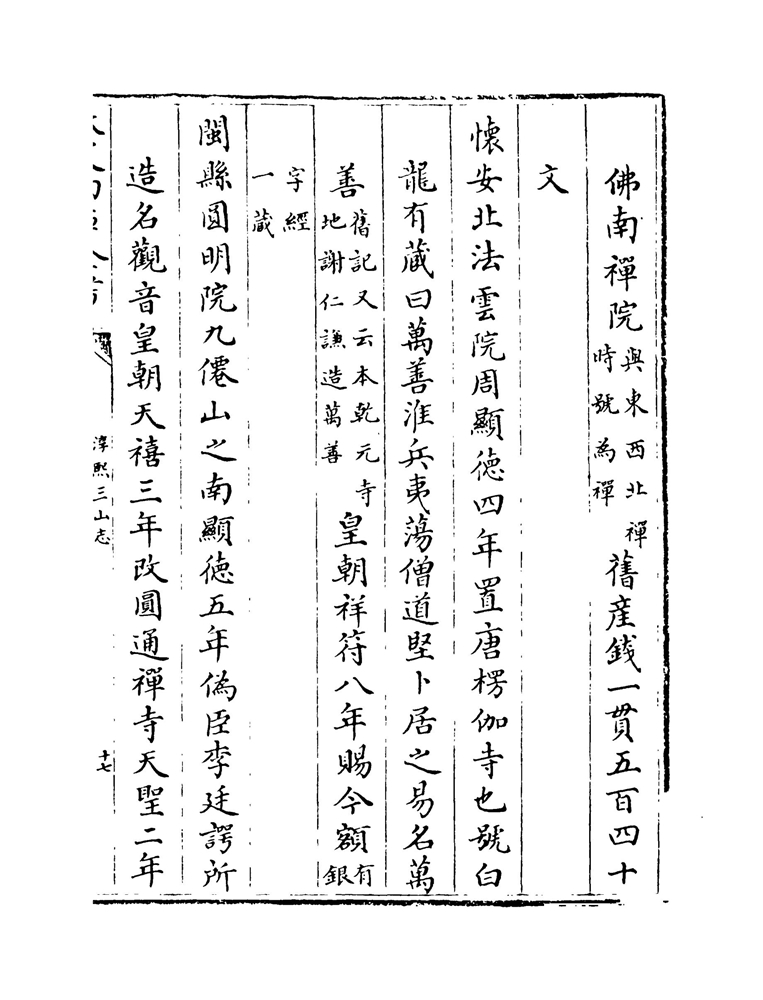 佛南禪院與東西北禪時號為禪舊産錢一貫五百四十
文
懷安北法雲院周顯徳四年置唐楞伽寺也號白
龍有藏曰萬善淮兵夷蕩僧道堅卜居之易名萬
善舊記又云本乾元寺地謝仁謙造萬善皇朝祥符八年賜今額有銀
字經一藏
閩縣圓明院九僊山之南顯徳五年偽臣李廷諤所
造名觀音皇朝天禧三年改圓通禪寺天聖二年
淳熙三山志
十七